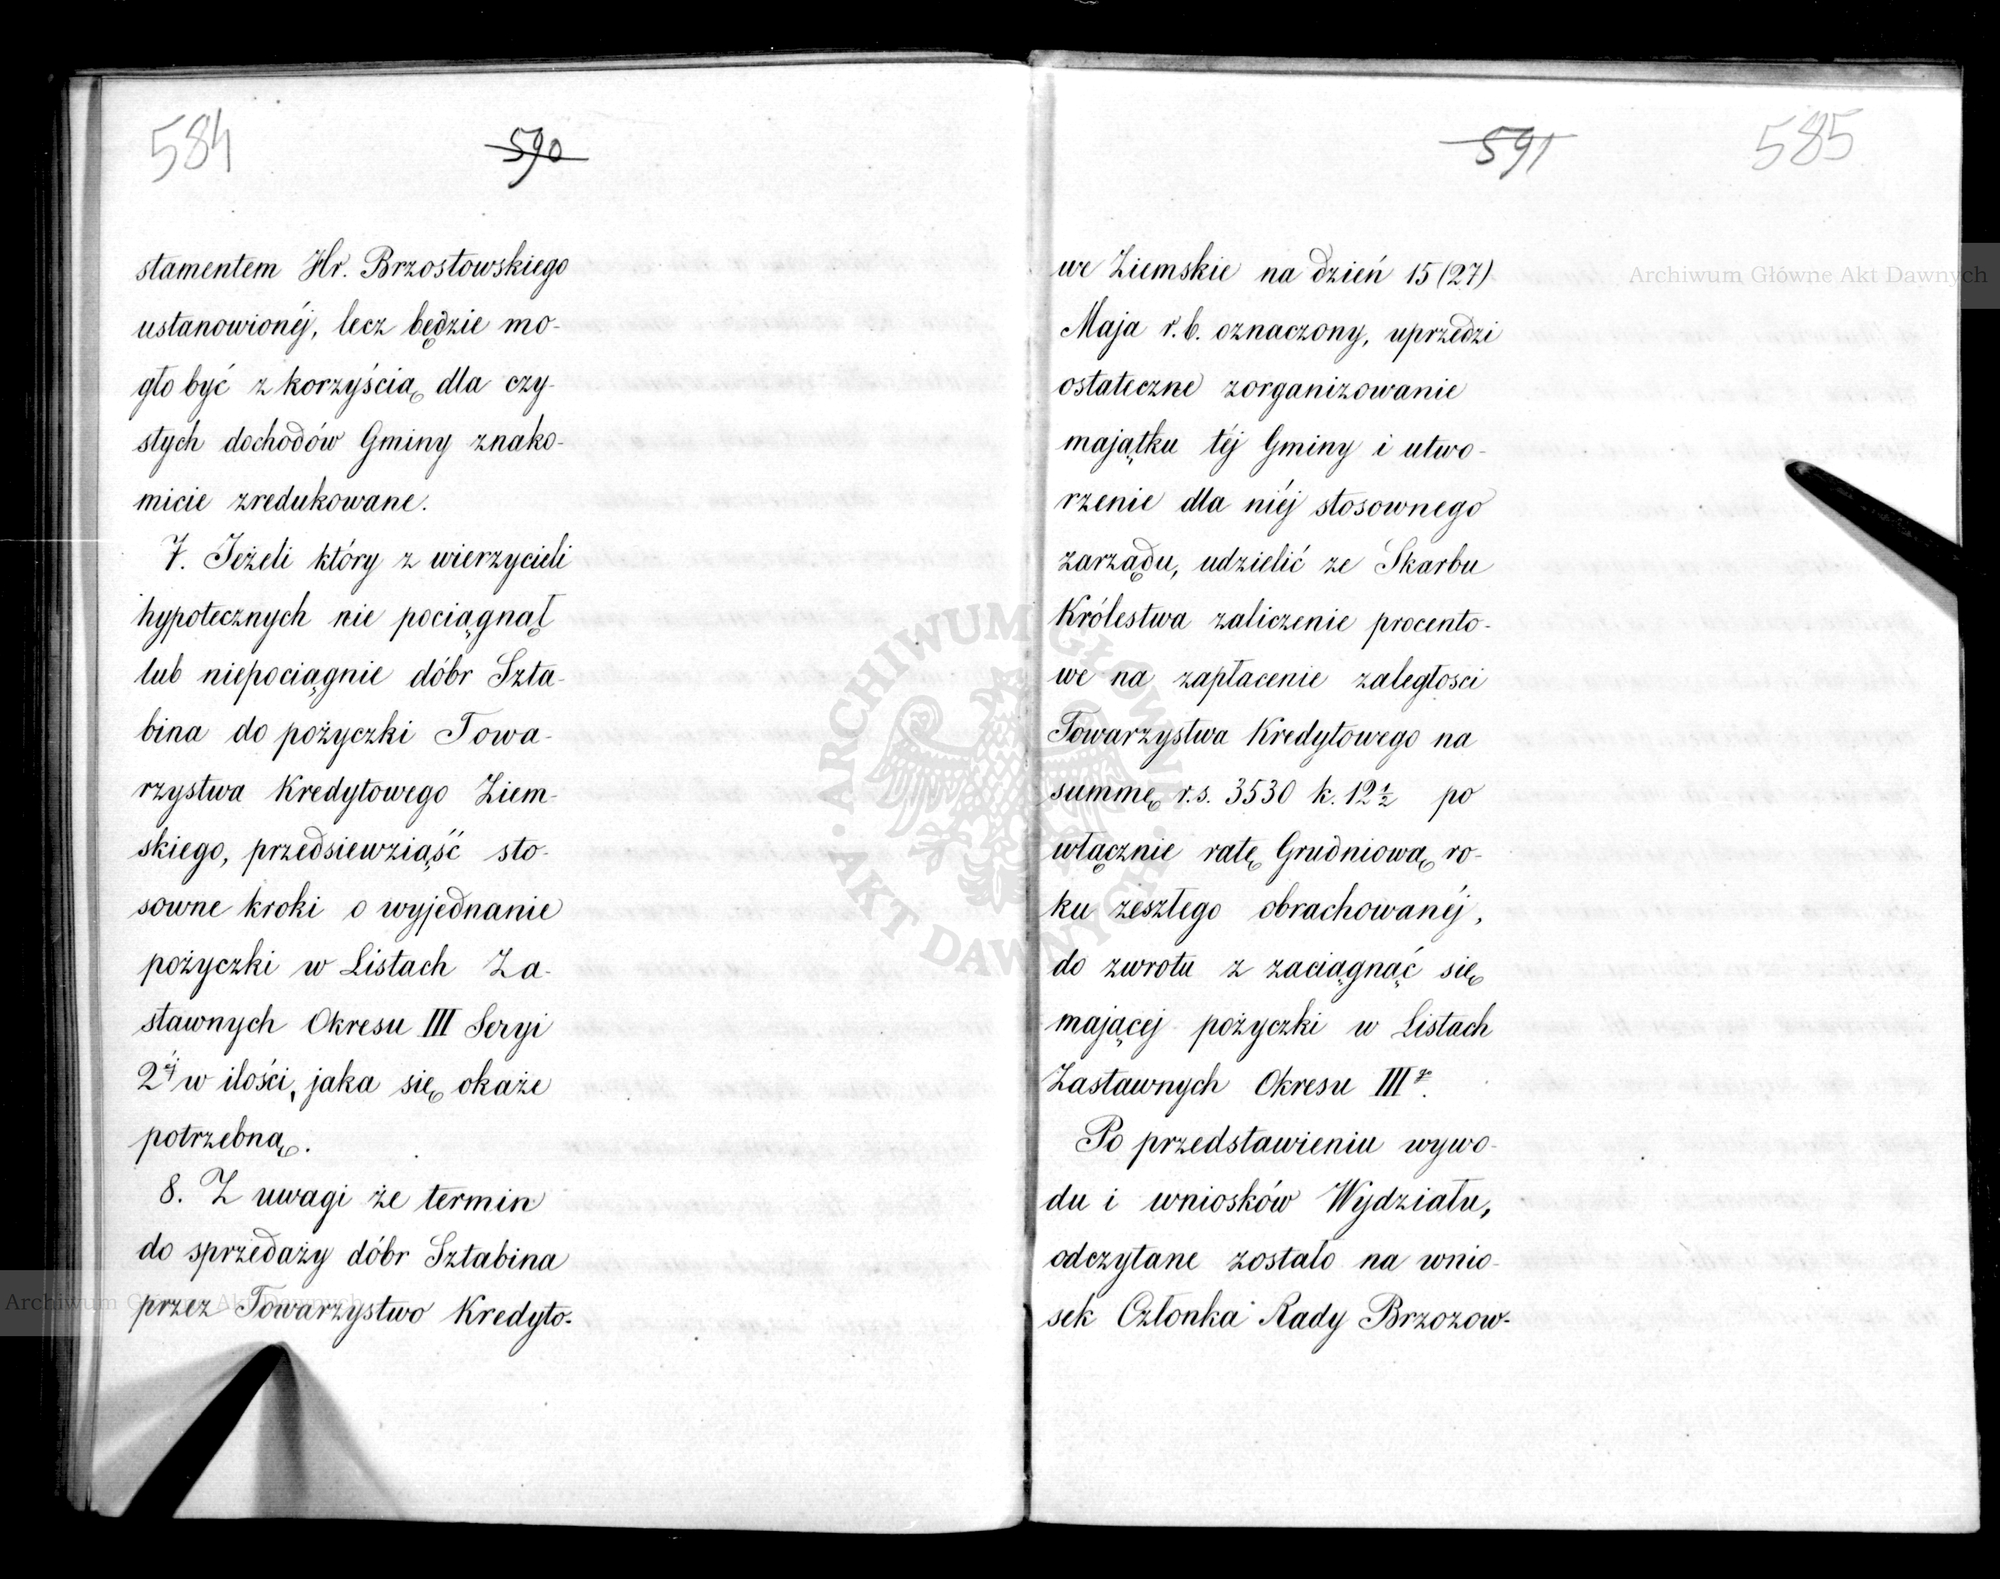 584
590
stamentem Hr. Brzostowskiego
ustanowionéj, lecz będzie mo-
gło być z korzyścią dla czy-
stych dochodów Gminy znako-
micie zredukowane.
7. Jeżeli który z wierzycieli
hypotecznych nie pociągnął
lub niepociągnie dóbr Szta-
bina do pożyczki Towa-
rzystwa Kredytowego Ziem-
skiego, przedsiewziąść sto-
sowne kroki o wyjednanie
pożyczki w Listach Za-
stawnych Okresu III Seryi
2éj w ilości, jaka się okaże
potrzebną.
8. Z uwagi że termin
do sprzedaży dóbr Sztabina
przez Towarzystwo Kredyto-
591
585
we Ziemskie na dzień 15 (27)
Maja r. b. oznaczony, uprzedzi
ostateczne zorganizowanie
majątku téj Gminy i utwo-
rzenie dla niéj stosownego
zarządu, udzielić ze Skarbu
Królestwa zaliczenie procento-
we na zapłacenie zaległosci
Towarzystwa Kredytowego na
summę r.s. 3530 k. 12½ po
włącznie ratę Grudniową ro-
ku zeszłego obrachowanéj,
do zwrotu z zaciągnąć się
mającej pożyczki w Listach
Zastawnych Okresu III go.
Po przedstawieniu wywo-
du i wniosków Wydziału,
odczytane zostało na wnio-
sek Członka Rady Brzozow-
Archiwum Główne Akt Dawnych
Archiwum Główne Akt Dawnych
ARCHIWUM GŁÓWNE · AKT DAWNYCH ·